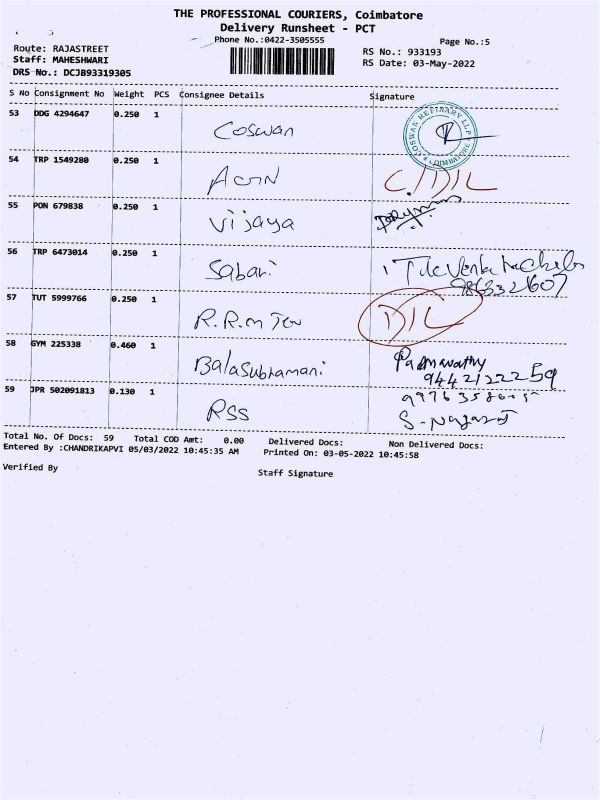 THE PROFESSIONAL COURIERS, Coimbatore
Delivery Runsheet - PCT
Phone No.:0422-3505555
Page No.:5
Route: RAJASTREET
RS No.: 933193
Staff: MAHESHWARI
RS Date: 03-May-2022
DRS No.: DCJB93319305
S No Consignment No Weight PCS Consignee Details Signature
53 DDG 4294647 0.250 1 Coswan COSWAN REFINARY LLP COIMBATORE
54 TRP 1549280 0.250 1 D/L
55 PON 679838 0.250 1 Vijaya
56 TRP 6473014 0.250 1 Sabari
57 TUT 5999766 0.250 1 R.R.m Tex D/L
58 GYM 225338 0.460 1 BalaSubramani Padmavathy
9442122259
59 JPR 502091813 0.130 1 RSS
S-Nagaraj
Total No. Of Docs: 59 Total COD Amt: 0.00 Delivered Docs: Non Delivered Docs:
Entered By :CHANDRIKAPVI 05/03/2022 10:45:35 AM Printed On: 03-05-2022 10:45:58
Verified By
Staff Signature